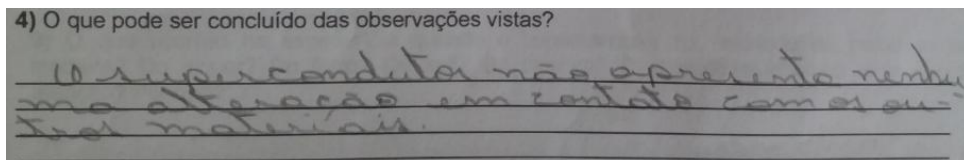 4) O que pode ser concluído das observações vistas?
O supercondutor não apresenta nenhu
ma alteração em contato com os ou-
tros materiais.